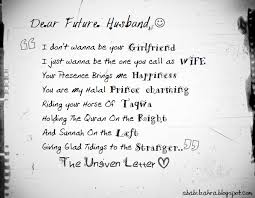 Dear Future Husband,
"I don't wanna be your Girlfriend
I just wanna be the one you call as WIFE
Your Presence Brings me Happiness
You are my Halal Prince charming
Riding your Horse Of Taqwa
Holding The Quran On the Right
And Sunnah On the Left
Giving Glad Tidings to the Stranger.."
The Ungiven Letter